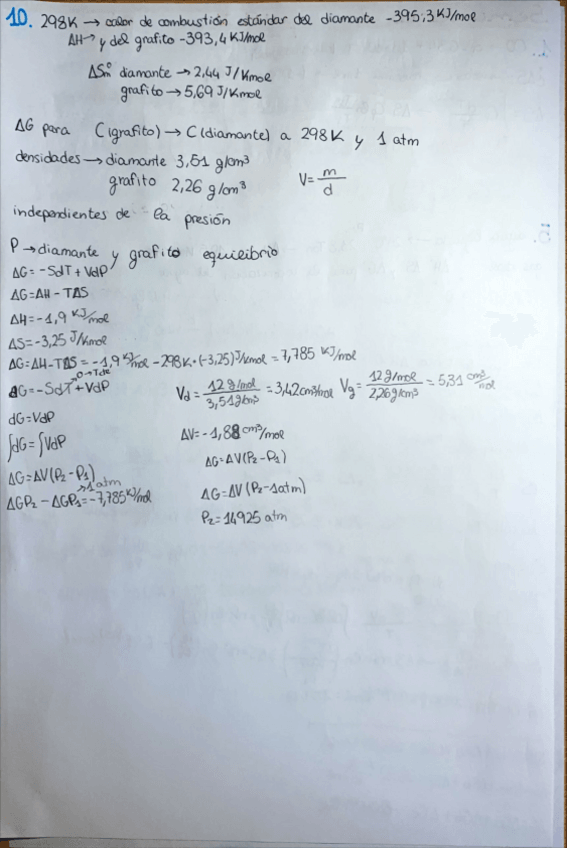 10. 298K → calor de combustión estándar del diamante -395,3 KJ/mol
ΔH→ y del grafito -393,4 KJ/mol
ΔSm° diamante → 2,44 J/Kmol
grafito → 5,69 J/Kmol
ΔG para C(grafito) → C(diamante) a 298K y 1 atm
densidades → diamante 3,51 g/cm³
grafito 2,26 g/cm³ V = m/d
independientes de la presión
P → diamante y grafito equilibrio
ΔG = -SdT + VdP
ΔG = ΔH - TΔS
ΔH = -1,9 KJ/mol
ΔS = -3,25 J/Kmol
ΔG = ΔH - TΔS = -1,9 KJ/mol - 298K·(-3,25) J/Kmol = 7,785 KJ/mol
dG = -SdT + VdP →0→Tcte Vd = 12 g/mol / 3,51 g/cm³ = 3,42 cm³/mol Vg = 12 g/mol / 2,26 g/cm³ = 5,31 cm³/mol
dG = VdP ΔV = -1,88 cm³/mol
∫dG = ∫VdP ΔG = ΔV(P₂ - P₁)
ΔG = ΔV(P₂ - P₁) →1 atm ΔG = ΔV(P₂ - 1 atm)
ΔGP₂ - ΔGP₁ = -7,785 KJ/mol P₂ = 14925 atm